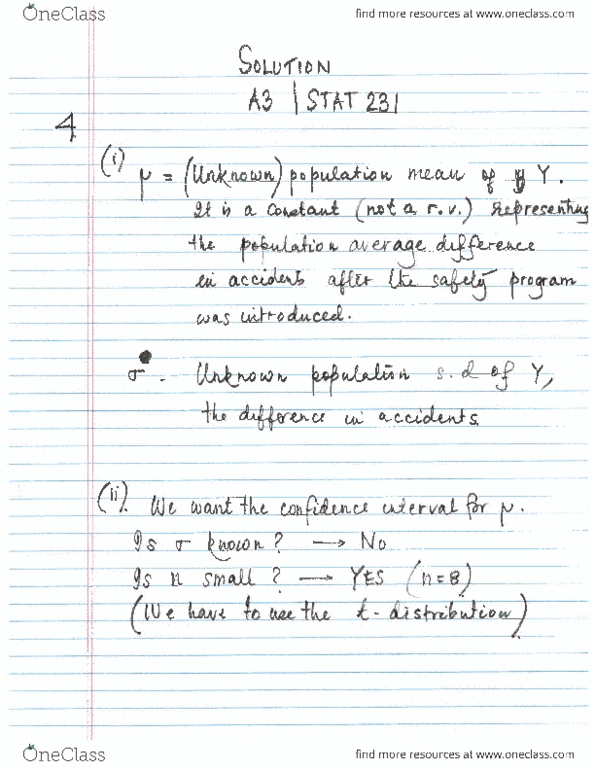 OneClass
find more resources at www.oneclass.com
SOLUTION
A3 | STAT 231
4
(i) μ = (Unknown) population mean of Y.
It is a constant (not a r.v.) representing
the population average difference
in accidents after the safety program
was introduced.
σ - Unknown population s.d of Y,
the difference in accidents
(ii). We want the confidence interval for μ.
Is σ known? → No
Is n small? → YES (n=8)
(We have to use the t-distribution)
OneClass
find more resources at www.oneclass.com